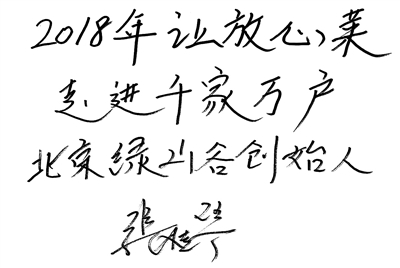 2018年让放心菜
走进千家万户
北京绿山谷创始人